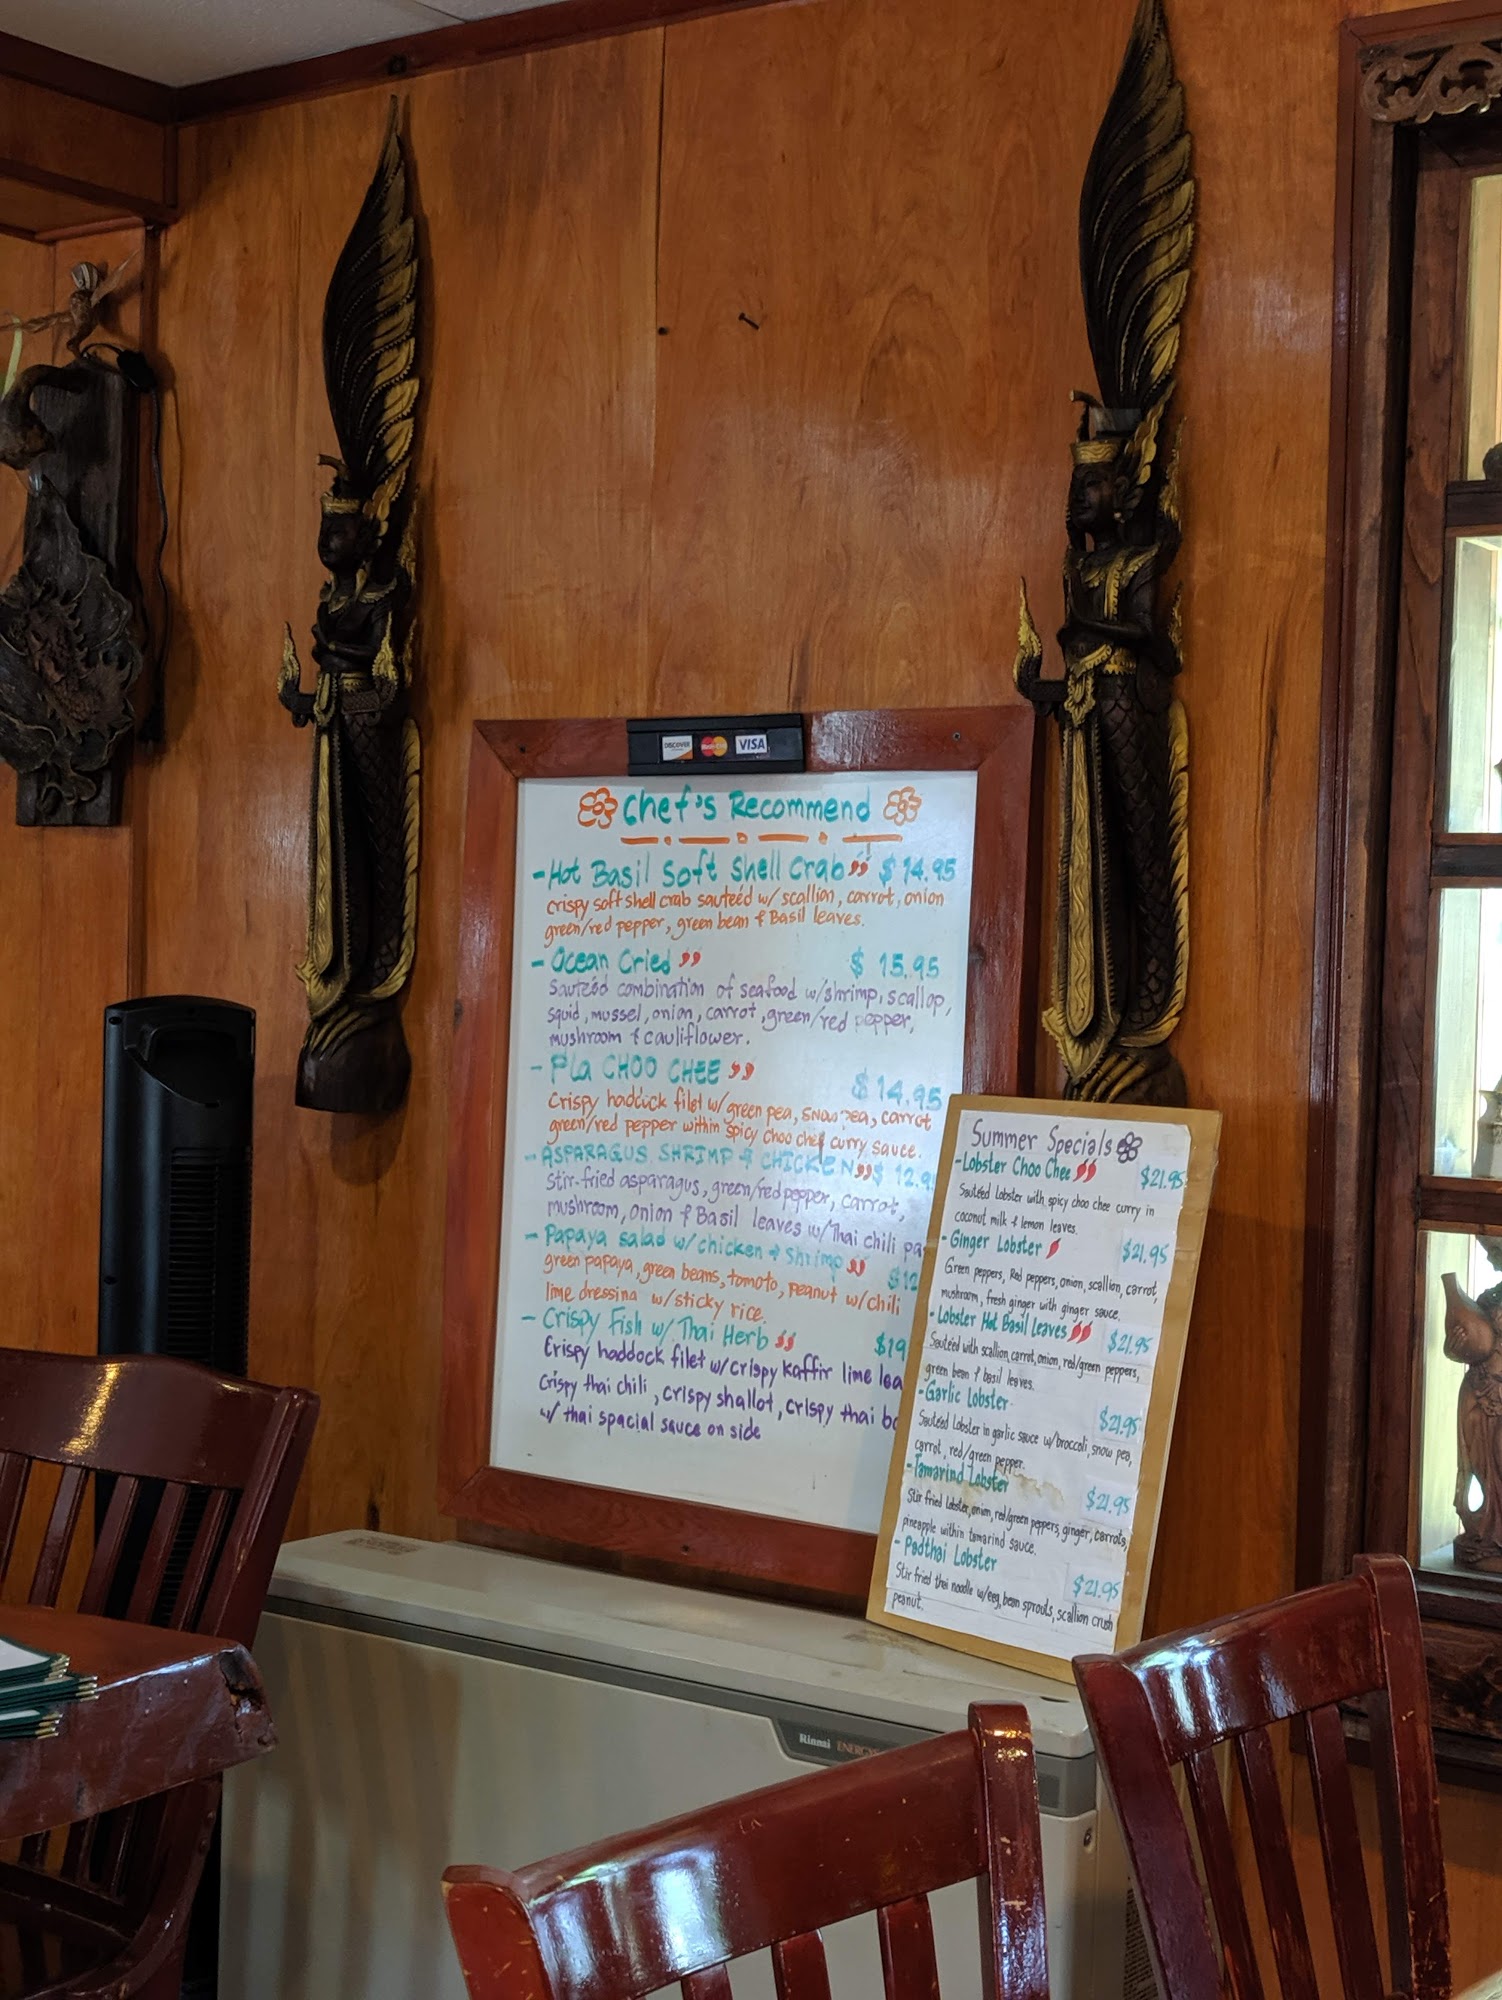 DISCOVER MasterCard VISA
Chef's Recommend
- Hot Basil Soft Shell Crab $14.95
crispy soft shell crab sauteéd w/ scallion, carrot, onion
green/red pepper, green bean & Basil leaves.
- Ocean Cried $ 15.95
Sauteéd combination of seafood w/shrimp, scallop,
squid, mussel, onion, carrot, green/red pepper,
mushroom & cauliflower.
- Pla CHOO CHEE $14.95
Crispy haddock filet w/green pea, snow pea, carrot
green/red pepper within spicy choo chee curry sauce.
- ASPARAGUS SHRIMP & CHICKEN $ 12.9
Stir-fried asparagus, green/red pepper, carrot,
mushroom, onion & Basil leaves w/Thai chili pa
- Papaya salad w/chicken & Shrimp $12
green papaya, green beans, tomoto, peanut w/chili
lime dressing w/sticky rice.
- Crispy Fish w/ Thai Herb $19
Crispy haddock filet w/crispy kaffir lime lea
Crispy thai chili, crispy shallot, crispy thai ba
w/ thai spacial sauce on side
Summer Specials
- Lobster Choo Chee $21.95
Sautéed Lobster with spicy choo chee curry in
coconut milk & lemon leaves.
- Ginger Lobster $21.95
Green peppers, Red peppers, onion, scallion, carrot,
mushroom, fresh ginger with ginger sauce.
- Lobster Hot Basil Leaves $21.95
Sautéed with scallion, carrot, onion, red/green peppers,
green bean & basil leaves.
- Garlic Lobster $21.95
Sautéed Lobster in garlic sauce w/broccoli, snow pea,
carrot, red/green pepper.
- Tamarind Lobster $21.95
Stir fried Lobster, onion, red/green peppers, ginger, carrots,
pineapple within tamarind sauce.
- Padthai Lobster $21.95
Stir fried thai noodle w/egg, bean sprouts, scallion crush
peanut.
Rinnai ENERGY